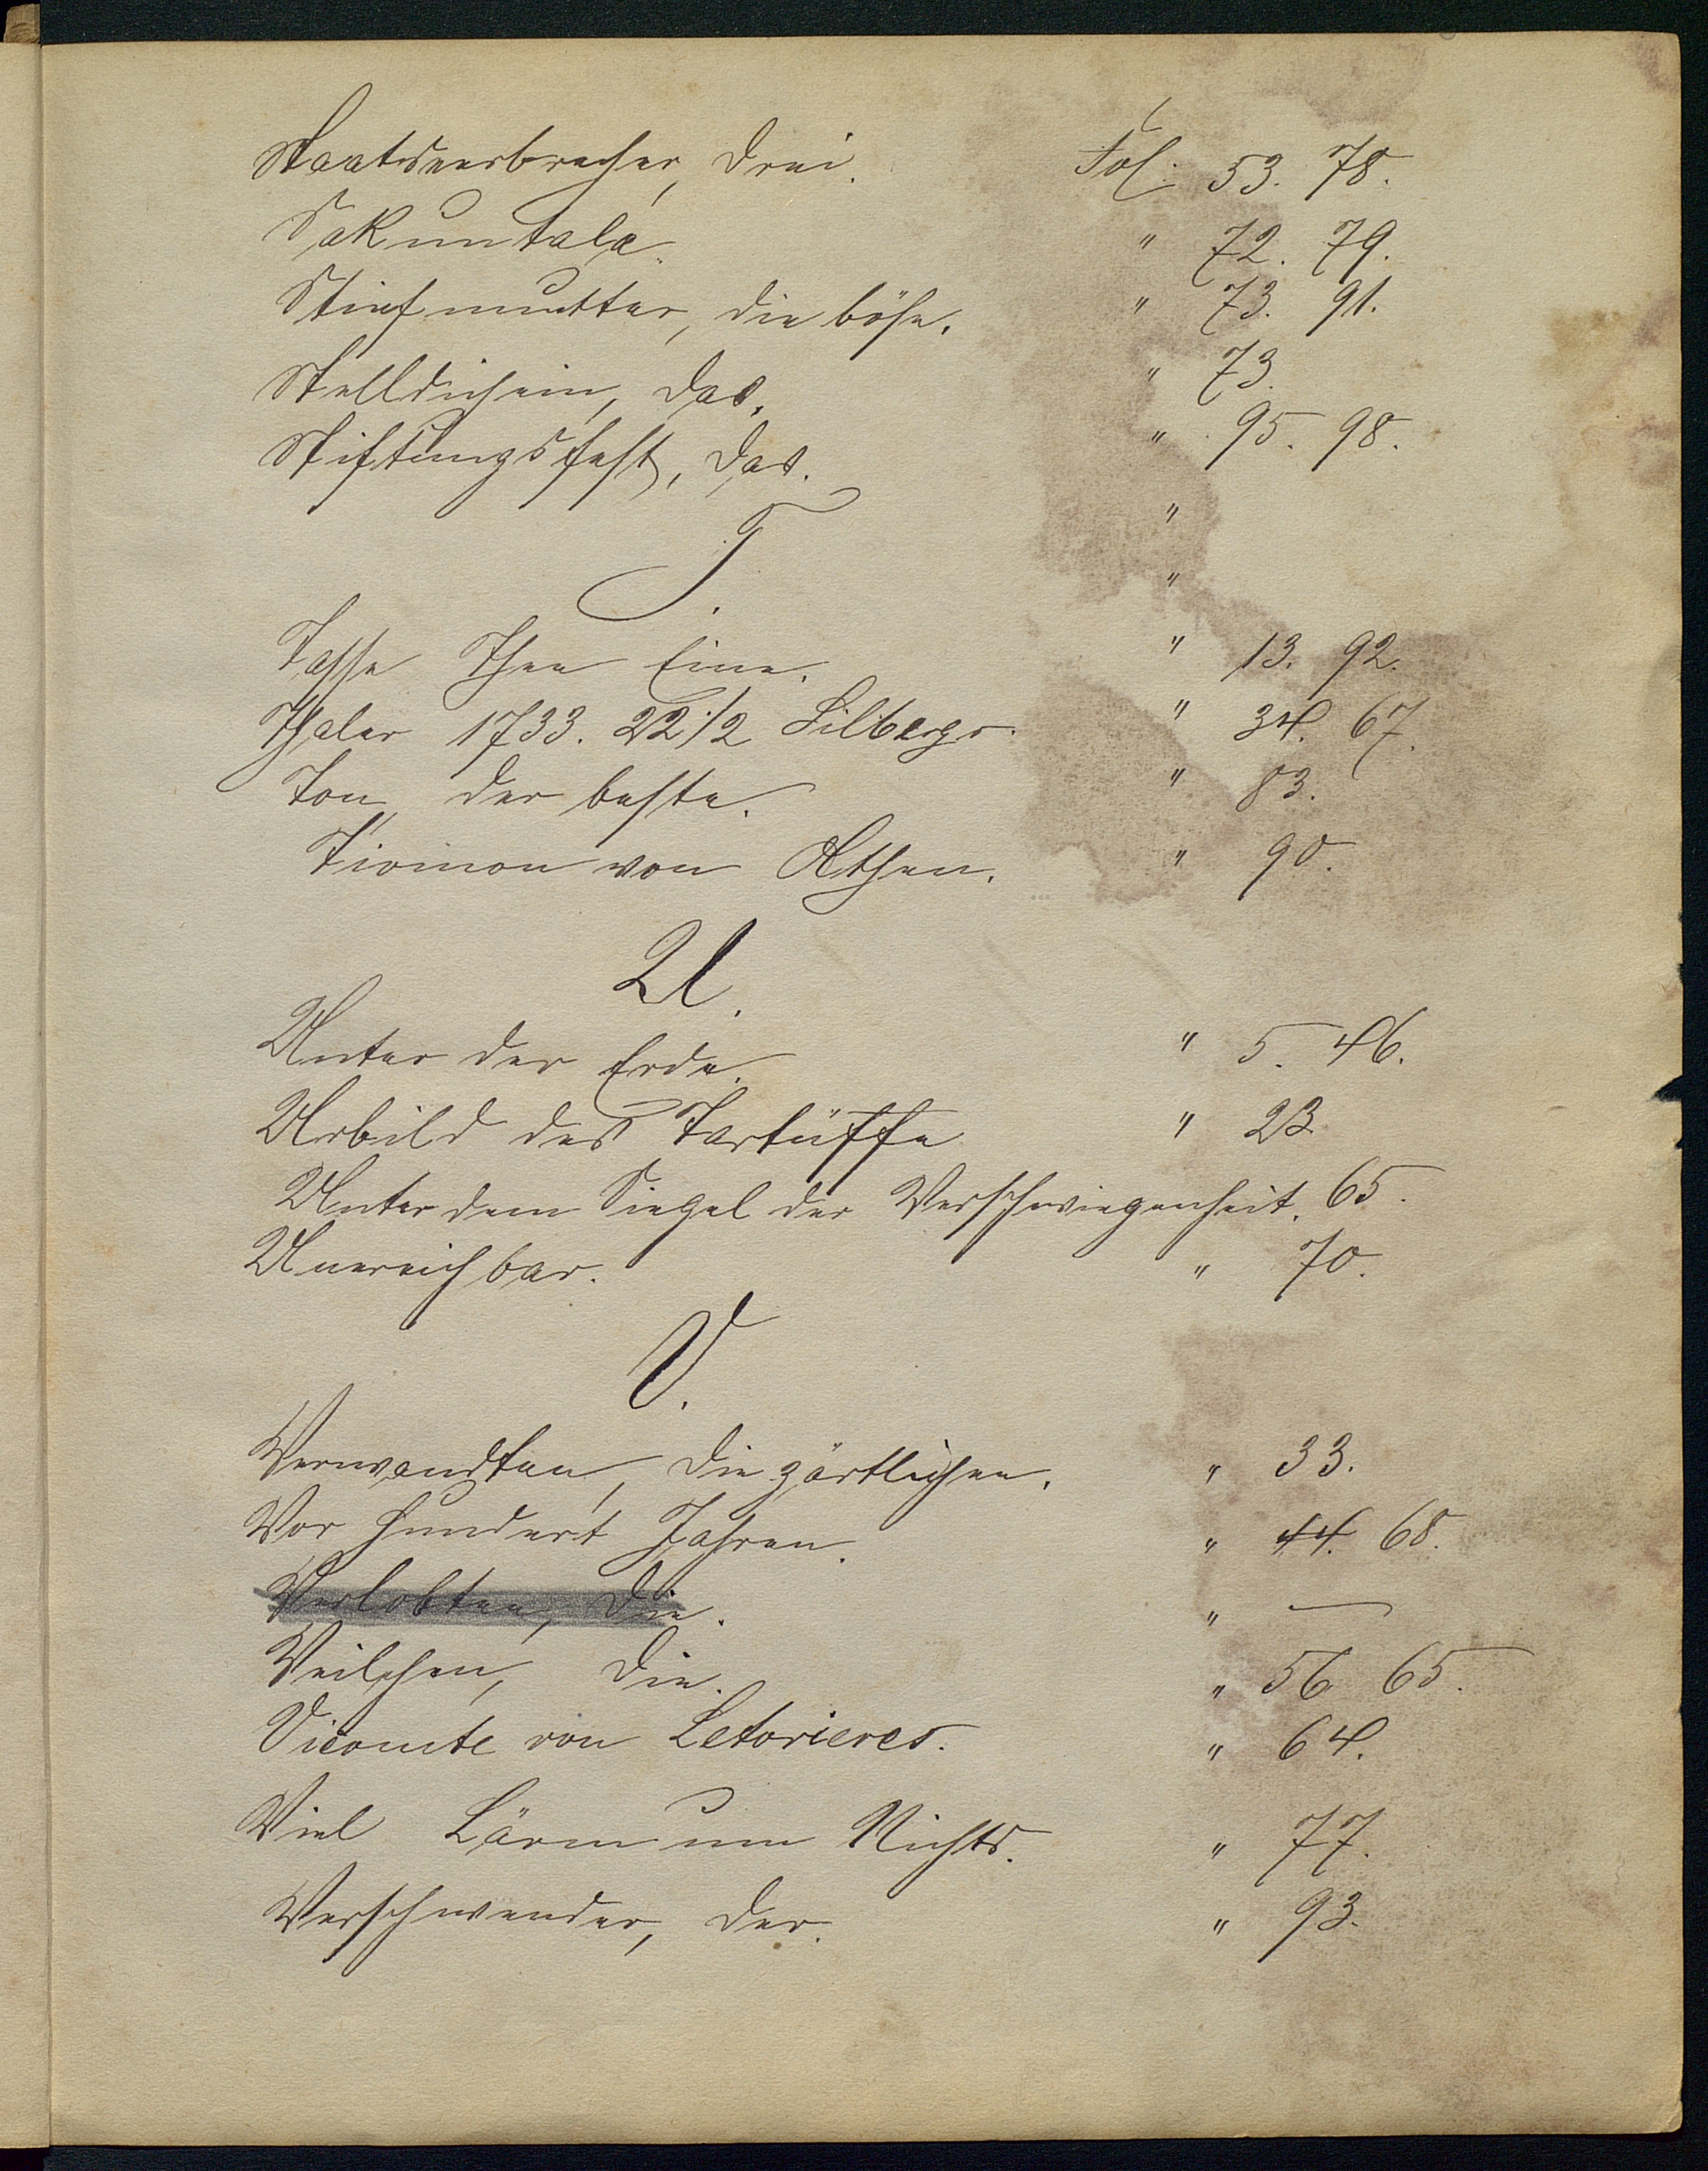 Staatsverbrecher, drei. Fol. 53. 78.
Sakuntala. " 72. 79.
Stiefmutter, die böse. " 73. 91.
Stelldichein, das. " 73.
Stiftungsfest, das. " 95. 98.
"
T.
"
Tasse Thee Eine. " 13. 92.
Thaler 1733. 22½ Silbergr. " 34. 67.
Ton, der beste. " 83.
Tiomon von Athen. " 90.
U.
Unter der Erde. " 5. 46.
Urbild des Tartüffe " 23.
Unter dem Siegel der Verschwiegenheit. 65.
Unereichbar. " 70.
V.
Verwandten, die zärtlichen. " 33.
Vor hundert Jahren. " 44. 68.
Verlobten, die. " —
Veilchen, die. " 56 65.
Vicomte von Letorieres. " 64.
Viel Lärm um Nichts. " 77.
Verschwender, der. " 93.